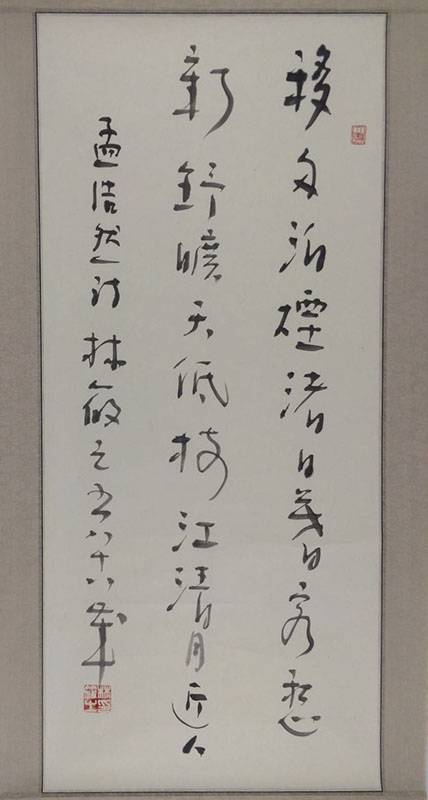 移舟泊煙渚日暮客愁
新野曠天低树江清月近人
孟浩然诗林筱之书八十